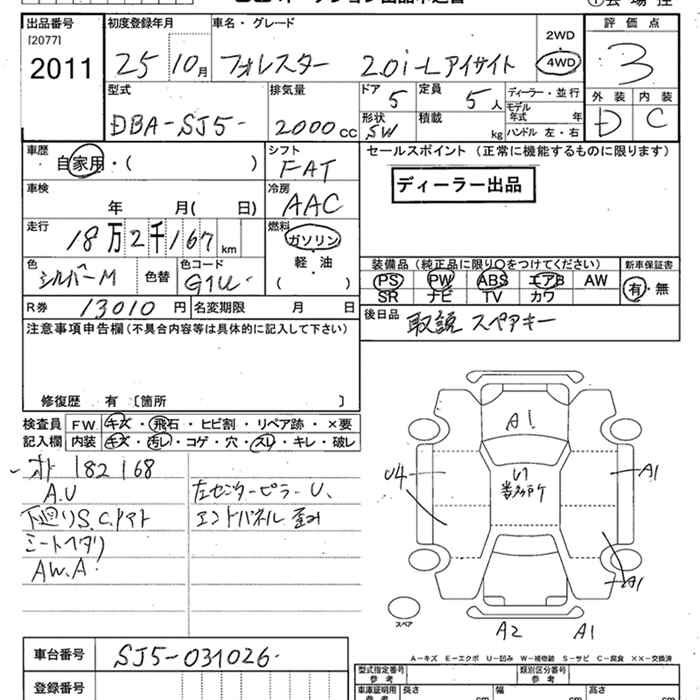 出品番号 初度登録年月 車名・グレード 2WD 評価点
[2077]
2011 25 10月 フォレスター 2.0i-Lアイサイト 4WD 3
型式 排気量 ドア 定員 ディーラー・並行 外装 内装
DBA-SJ5- 2000cc 5 5人 モデル年式 年 D C
形状 SW 積載 kg ハンドル 左・右
車歴 シフト セールスポイント (正常に機能するものに限ります)
自家用・( ) FAT
ディーラー出品
車検 冷房
年 月( 日) AAC
走行 燃料
18万2千167km ガソリン
軽・油
( )
色 色コード 装備品 (純正品に限り○をつけてください) 新車保証書
シルバーM 色替 G1U PS PW ABS エアB AW 有・無
SR ナビ TV カワ
R券 13010円 名変期限 月 日 後日品 取説 スペアキー
注意事項申告欄 (不具合内容等は具体的に記入して下さい)
修復歴 有 〔箇所 〕
検査員 FW キズ・飛石・ヒビ割・リペア跡・×要
記入欄 内装 キズ・汚レ・コゲ・穴・スレ・キレ・破レ
182168
A.U 左センターピラーU、
下廻りS.C.
エンドパネル歪み
シートヘタリ
AW.A
A1
U4 U1 A1
多数ケ所
A1
スペア
A2 A1
A-キズ E-エクボ U-凹み W-補修跡 S-サビ C-腐食 ××-交換済
車台番号 SJ5-031026
登録番号
型式指定番号 参考 類別区分番号 参考
車庫証明用 参考 長さ cm 幅 cm 高さ cm